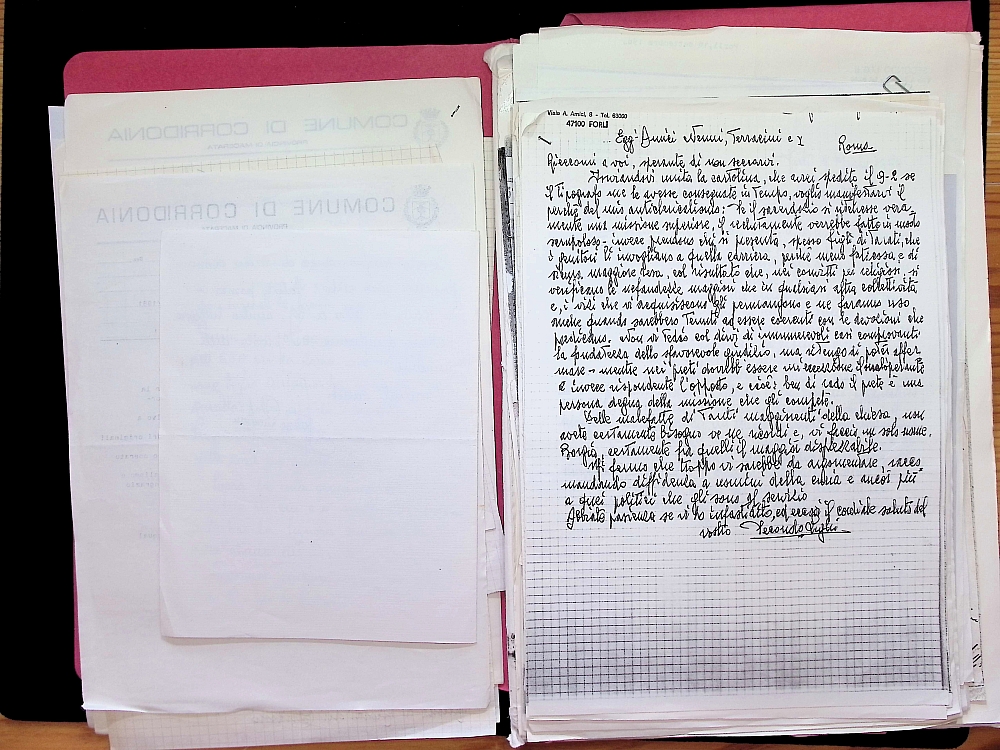 COMUNE DI CORRIDONIA
COMUNE DI CORRIDONIA
Viale A. Amici, 8 - Tel. 63000
47100 FORLÌ
Egg. Amici Nenni, Terracini e
Roma
Rieccomi a voi, sperante di non seccarvi.
Inviandovi unita la cartolina, che avrei spedito il 9-2 se
il tipografo me le avesse consegnate in tempo, voglio manifestarvi il
perché del mio anticlericalismo: Se il sacerdozio si ritenesse vera
mente una missione superiore, il reclutamento verrebbe fatto in modo
scrupoloso - invece prendono chi si presenta, spesso figli di tarati, che
i genitori li invogliano a quella carriera, perché meno faticosa e di
maggiore resa, col risultato che, nei convitti dei religiosi, si
verificano le nefandezze maggiori che in qualsiasi altra collettività
e, i vizi che vi acquisiscono gli permangono e ne faranno uso
anche quando sarebbero tenuti ad essere coerenti con le devozioni che
predicano. Non vi tedio col dirvi di innumerevoli casi comprovanti
la fondatezza dello sfavorevole giudizio, ma ritengo di poter affer
mare - mentre nei preti dovrebbe essere un'eccezione il
è invece rispondente l'opposto, e cioè: ben di rado il prete è una
persona degna della missione che gli compete.
Delle malefatte di tanti maggiorenti della chiesa, non
avete certamente bisogno ve ne ricordi e, vi faccio un solo nome.
Borgia, certamente fra quelli il maggior disprezzabile.
Mi fermo che troppo vi sarebbe da argomentare, racco
mandando diffidenza a uomini della curia e ancor più
a quei politici che gli sono al servizio
Abbiate pazienza se vi ho infastidito, ed eccovi il cordiale saluto del
vostro Secondo